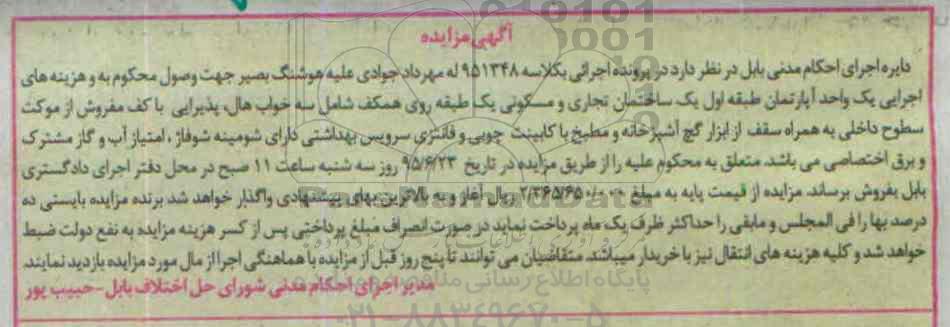 آگهی مزایده
دایره اجرای احکام مدنی بابل در نظر دارد در پرونده اجرائی بکلاسه ۹۵۱۳۴۸ له مهرداد جوادی علیه هوشنگ بصیر جهت وصول محکوم به و هزینه های
اجرایی یک واحد آپارتمان طبقه اول یک ساختمان تجاری و مسکونی یک طبقه روی همکف شامل سه خواب هال، پذیرایی با کف مفروش از موکت
سطوح داخلی به همراه سقف از ابزار گچ آشپزخانه و مطبخ با کابینت چوبی و فانتزی سرویس بهداشتی دارای شومینه شوفاژ، امتیاز آب و گاز مشترک
و برق اختصاصی می باشد. متعلق به محکوم علیه را از طریق مزایده در تاریخ ۹۵/۶/۲۳ روز سه شنبه ساعت ۱۱ صبح در محل دفتر اجرای دادگستری
بابل بفروش برساند. مزایده از قیمت پایه به مبلغ ۲/۳۶۵/۶۵۰/۰۰۰ ریال آغاز و به بالاترین بهای پیشنهادی واگذار خواهد شد. برنده مزایده بایستی ده
درصد بها را فی المجلس و مابقی را حداکثر ظرف یک ماه پرداخت نماید در صورت انصراف مبلغ پرداختی پس از کسر هزینه مزایده به نفع دولت ضبط
خواهد شد و کلیه هزینه های انتقال نیز با خریدار میباشد. متقاضیان می توانند تا پنج روز قبل از مزایده با هماهنگی اجرا از مال مورد مزایده بازدید نمایند.
مدیر اجرای احکام مدنی شورای حل اختلاف بابل - حبیب پور
۰۲۱-۸۸۳۴۹۶۷۰-۵